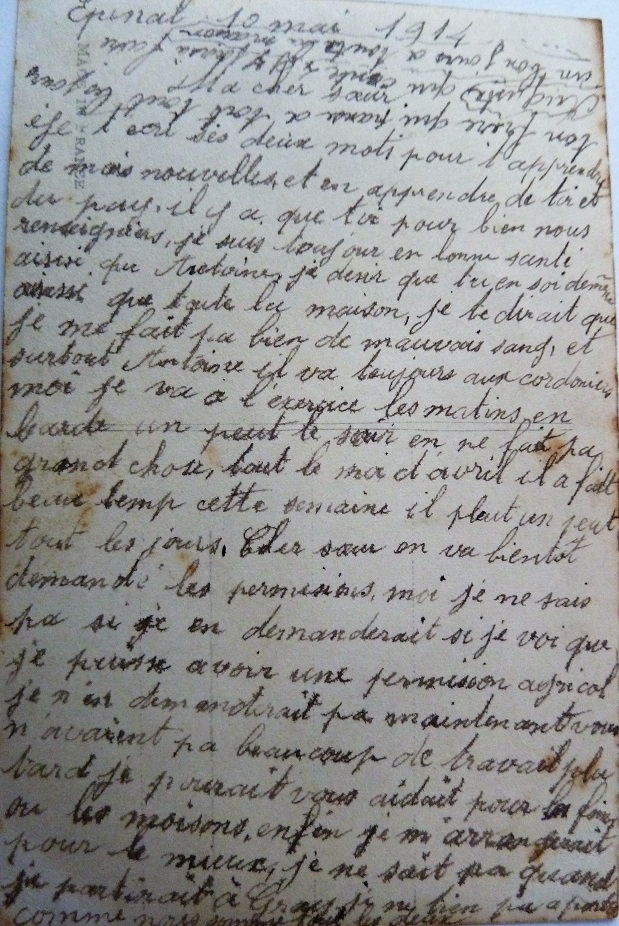 Epinal 10 mai 1914
un bon jour a toute la maison
Auguste qui
ton frère qui pense a tout toujours
Ma cher sœur
je t'ecri ses deux moti pour t'apprendre
de mais nouvelles, et en apprendre de tir et
du pays, il y a que tir pour bien nous
renseignées, je suis toujour en bonne santi
aisisi que Antoine, je desir que tu en soi de même
aussi que toute la maison, je te dirait que
je me fait pa bien de mauvais sang, et
surtout Antoine il va toujours aux cordoniers
moi je va a l'exercice les matins, en
barde un peut le soir en ne fait pa
grand chose, tout le moi d'avril il a fait
beau temp cette semaine il pleut un peut
tout les jours, Cher sœur en va bientot
demandé les permisions, moi je ne sais
pa si je en demanderait si je voi que
je puisse avoir une permission agricol
je n'en demanderait pa maintenant vous
n'avaient pa beaucoup de travail plu
tard je pourait vous aidait pour la foins
ou les moisons, enfin je m'arrangerait
pour le mieux, je ne sait pa quand
je partirait à Gray, je ne tien pa a partir
comme nous somme tout les deux
MADE IN FRANCE